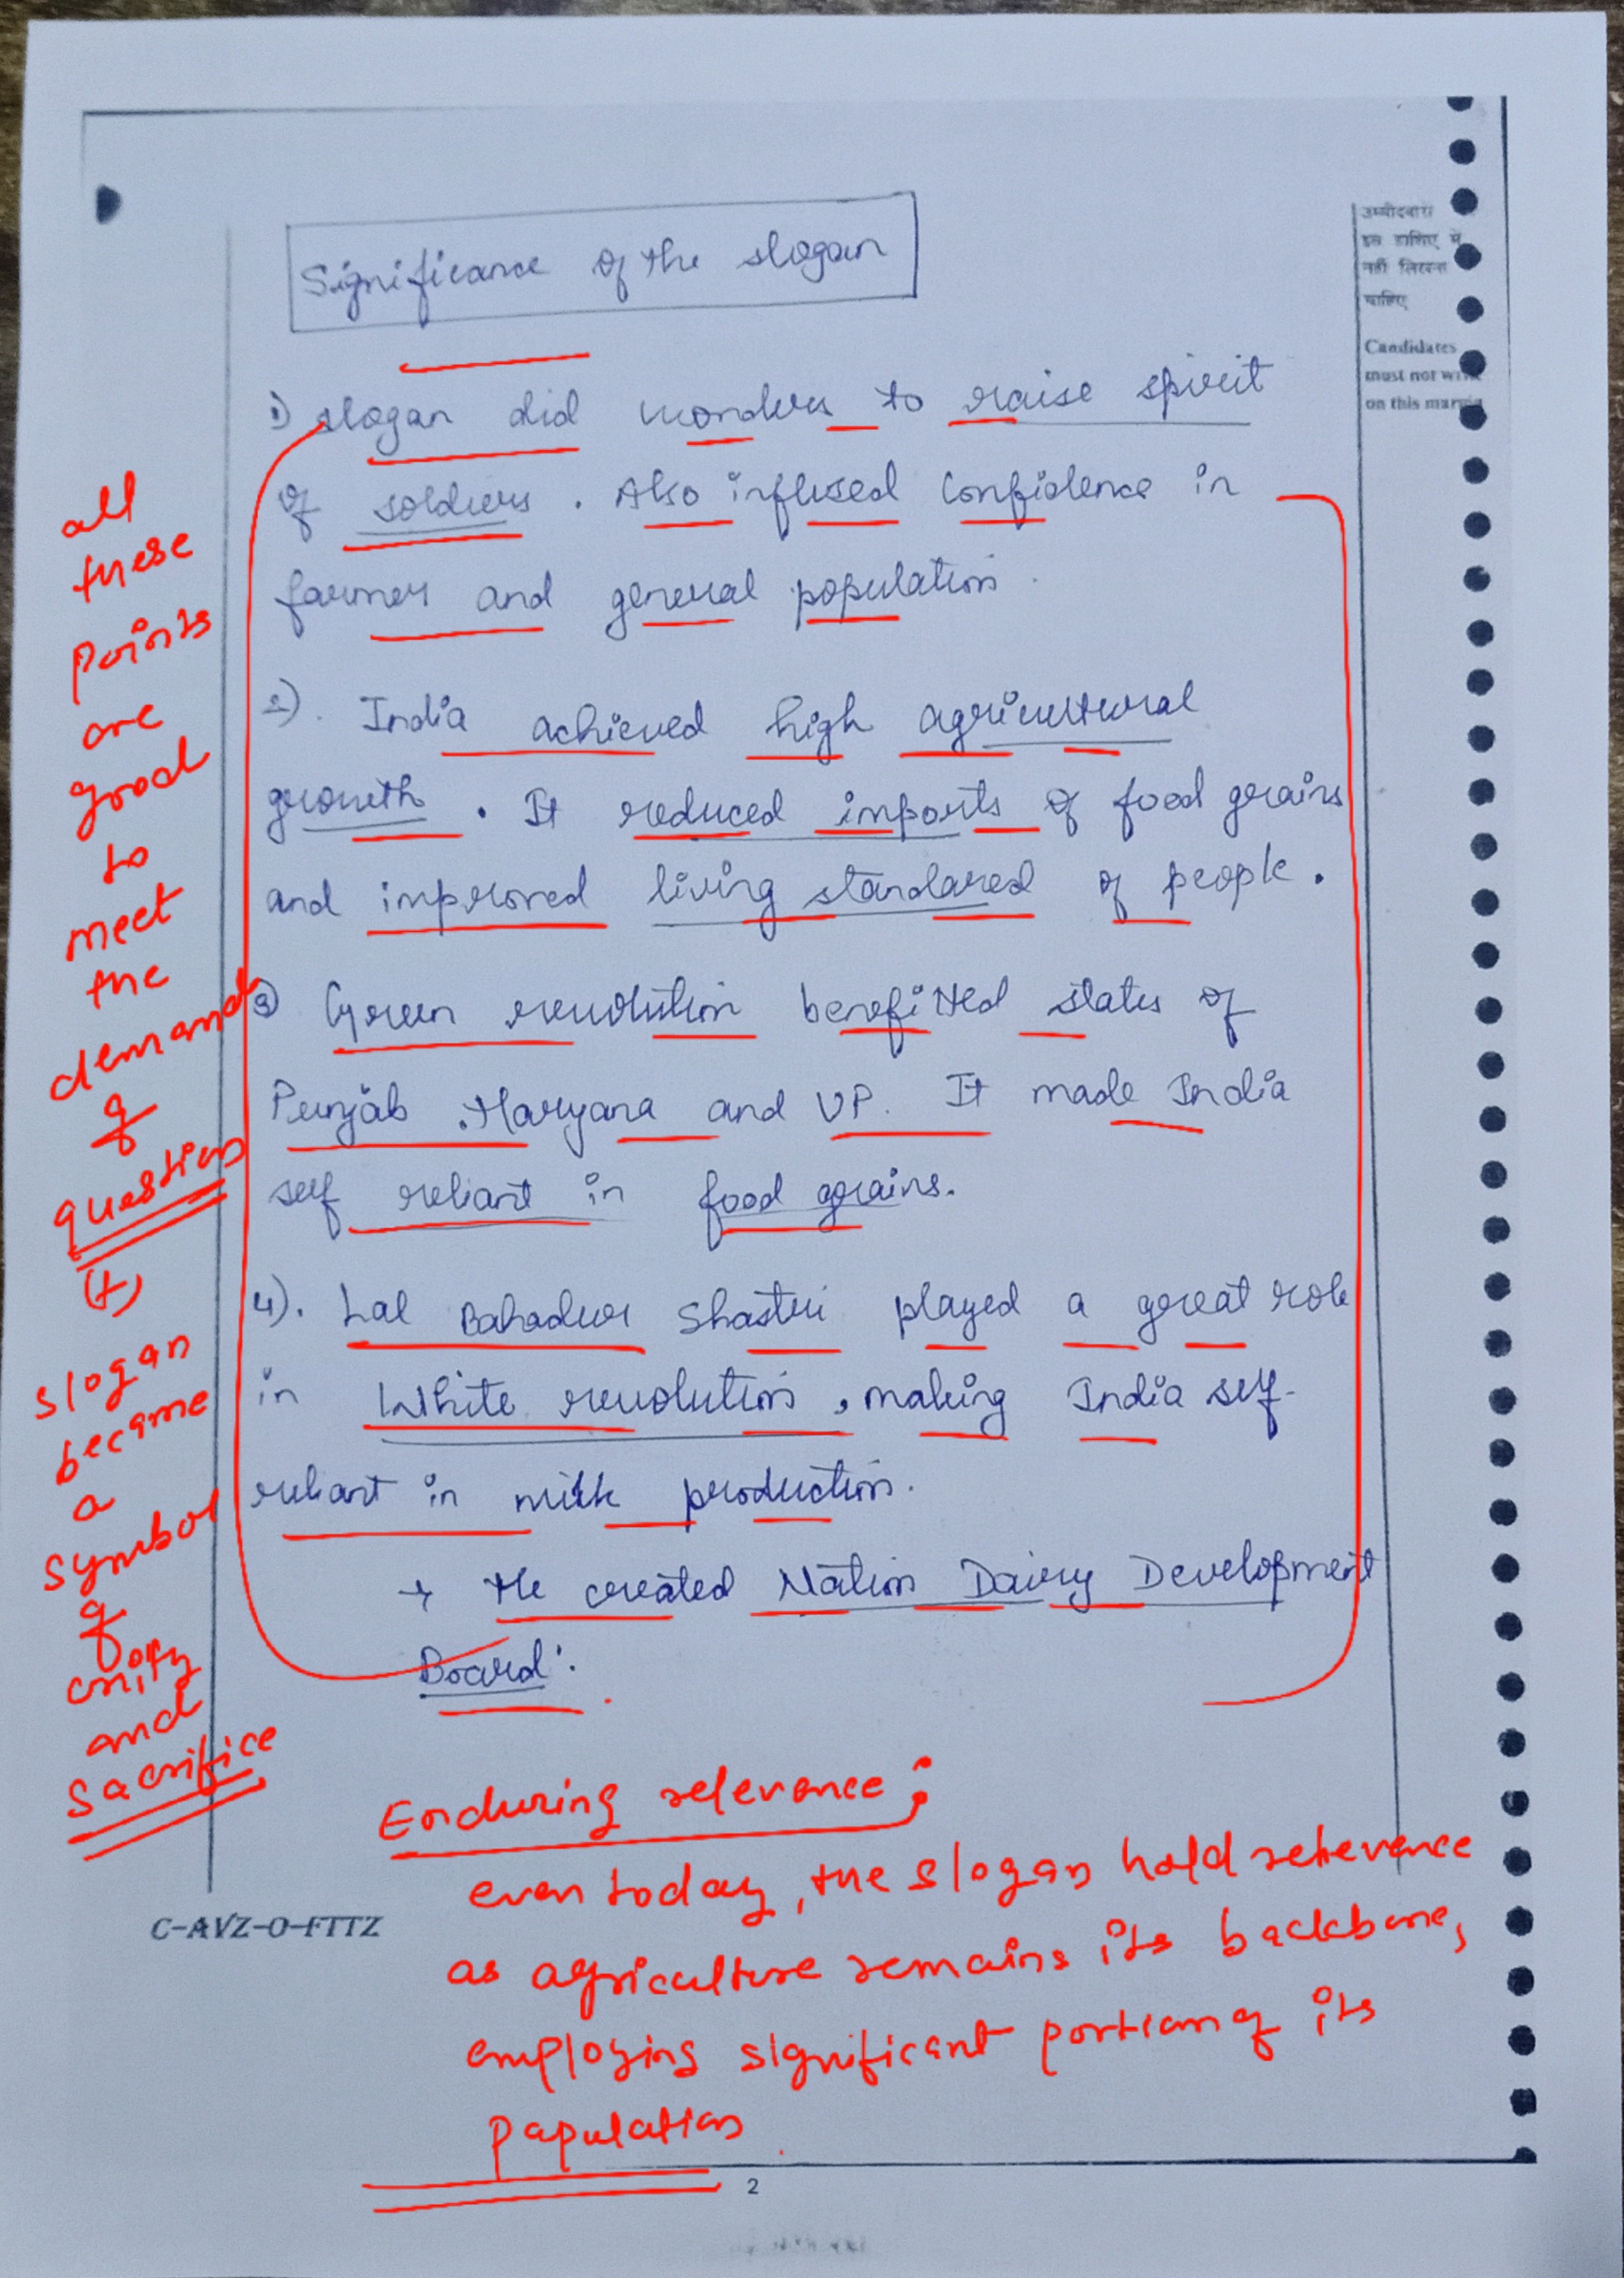 Significance of the slogan
उम्मीदवारों
इस हाशिए में
नहीं लिखना
चाहिए
Candidates
must not write
on this margin
1) slogan did wonders to raise spirit
of soldiers. Also infused confidence in
farmer and general population.
2). India achieved high agricultural
growth. It reduced imports of food grains
and improved living standared of people.
3) Green revolution benefitted states of
Punjab, Haryana and UP. It made India
self reliant in food grains.
4). Lal Bahadur Shastri played a great role
in White revolution, making India self-
reliant in milk production.
→ He created Nation Dairy Development
Board.
all
these
points
are
good
to
meet
the
demand
of
question
(+)
slogan
became
a
symbol
of
unity
and
sacrifice
Enduring relevance:
even today, the slogan hold relevence
as agriculture remains its backbone,
employing significant portion of its
population
C-AVZ-O-FTTZ
2